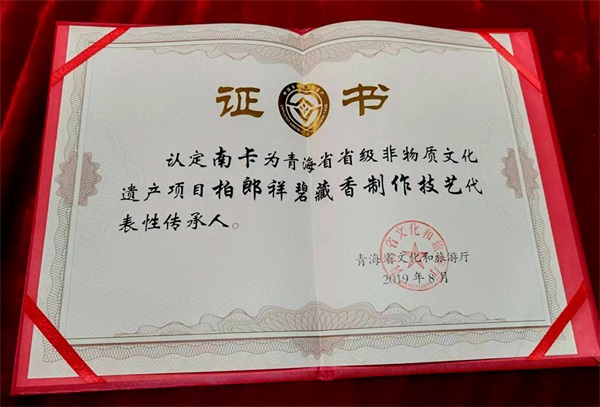 证书
认定南卡为青海省省级非物质文化
遗产项目柏郎祥碧藏香制作技艺代
表性传承人。
青海省文化和旅游厅
2019年8月